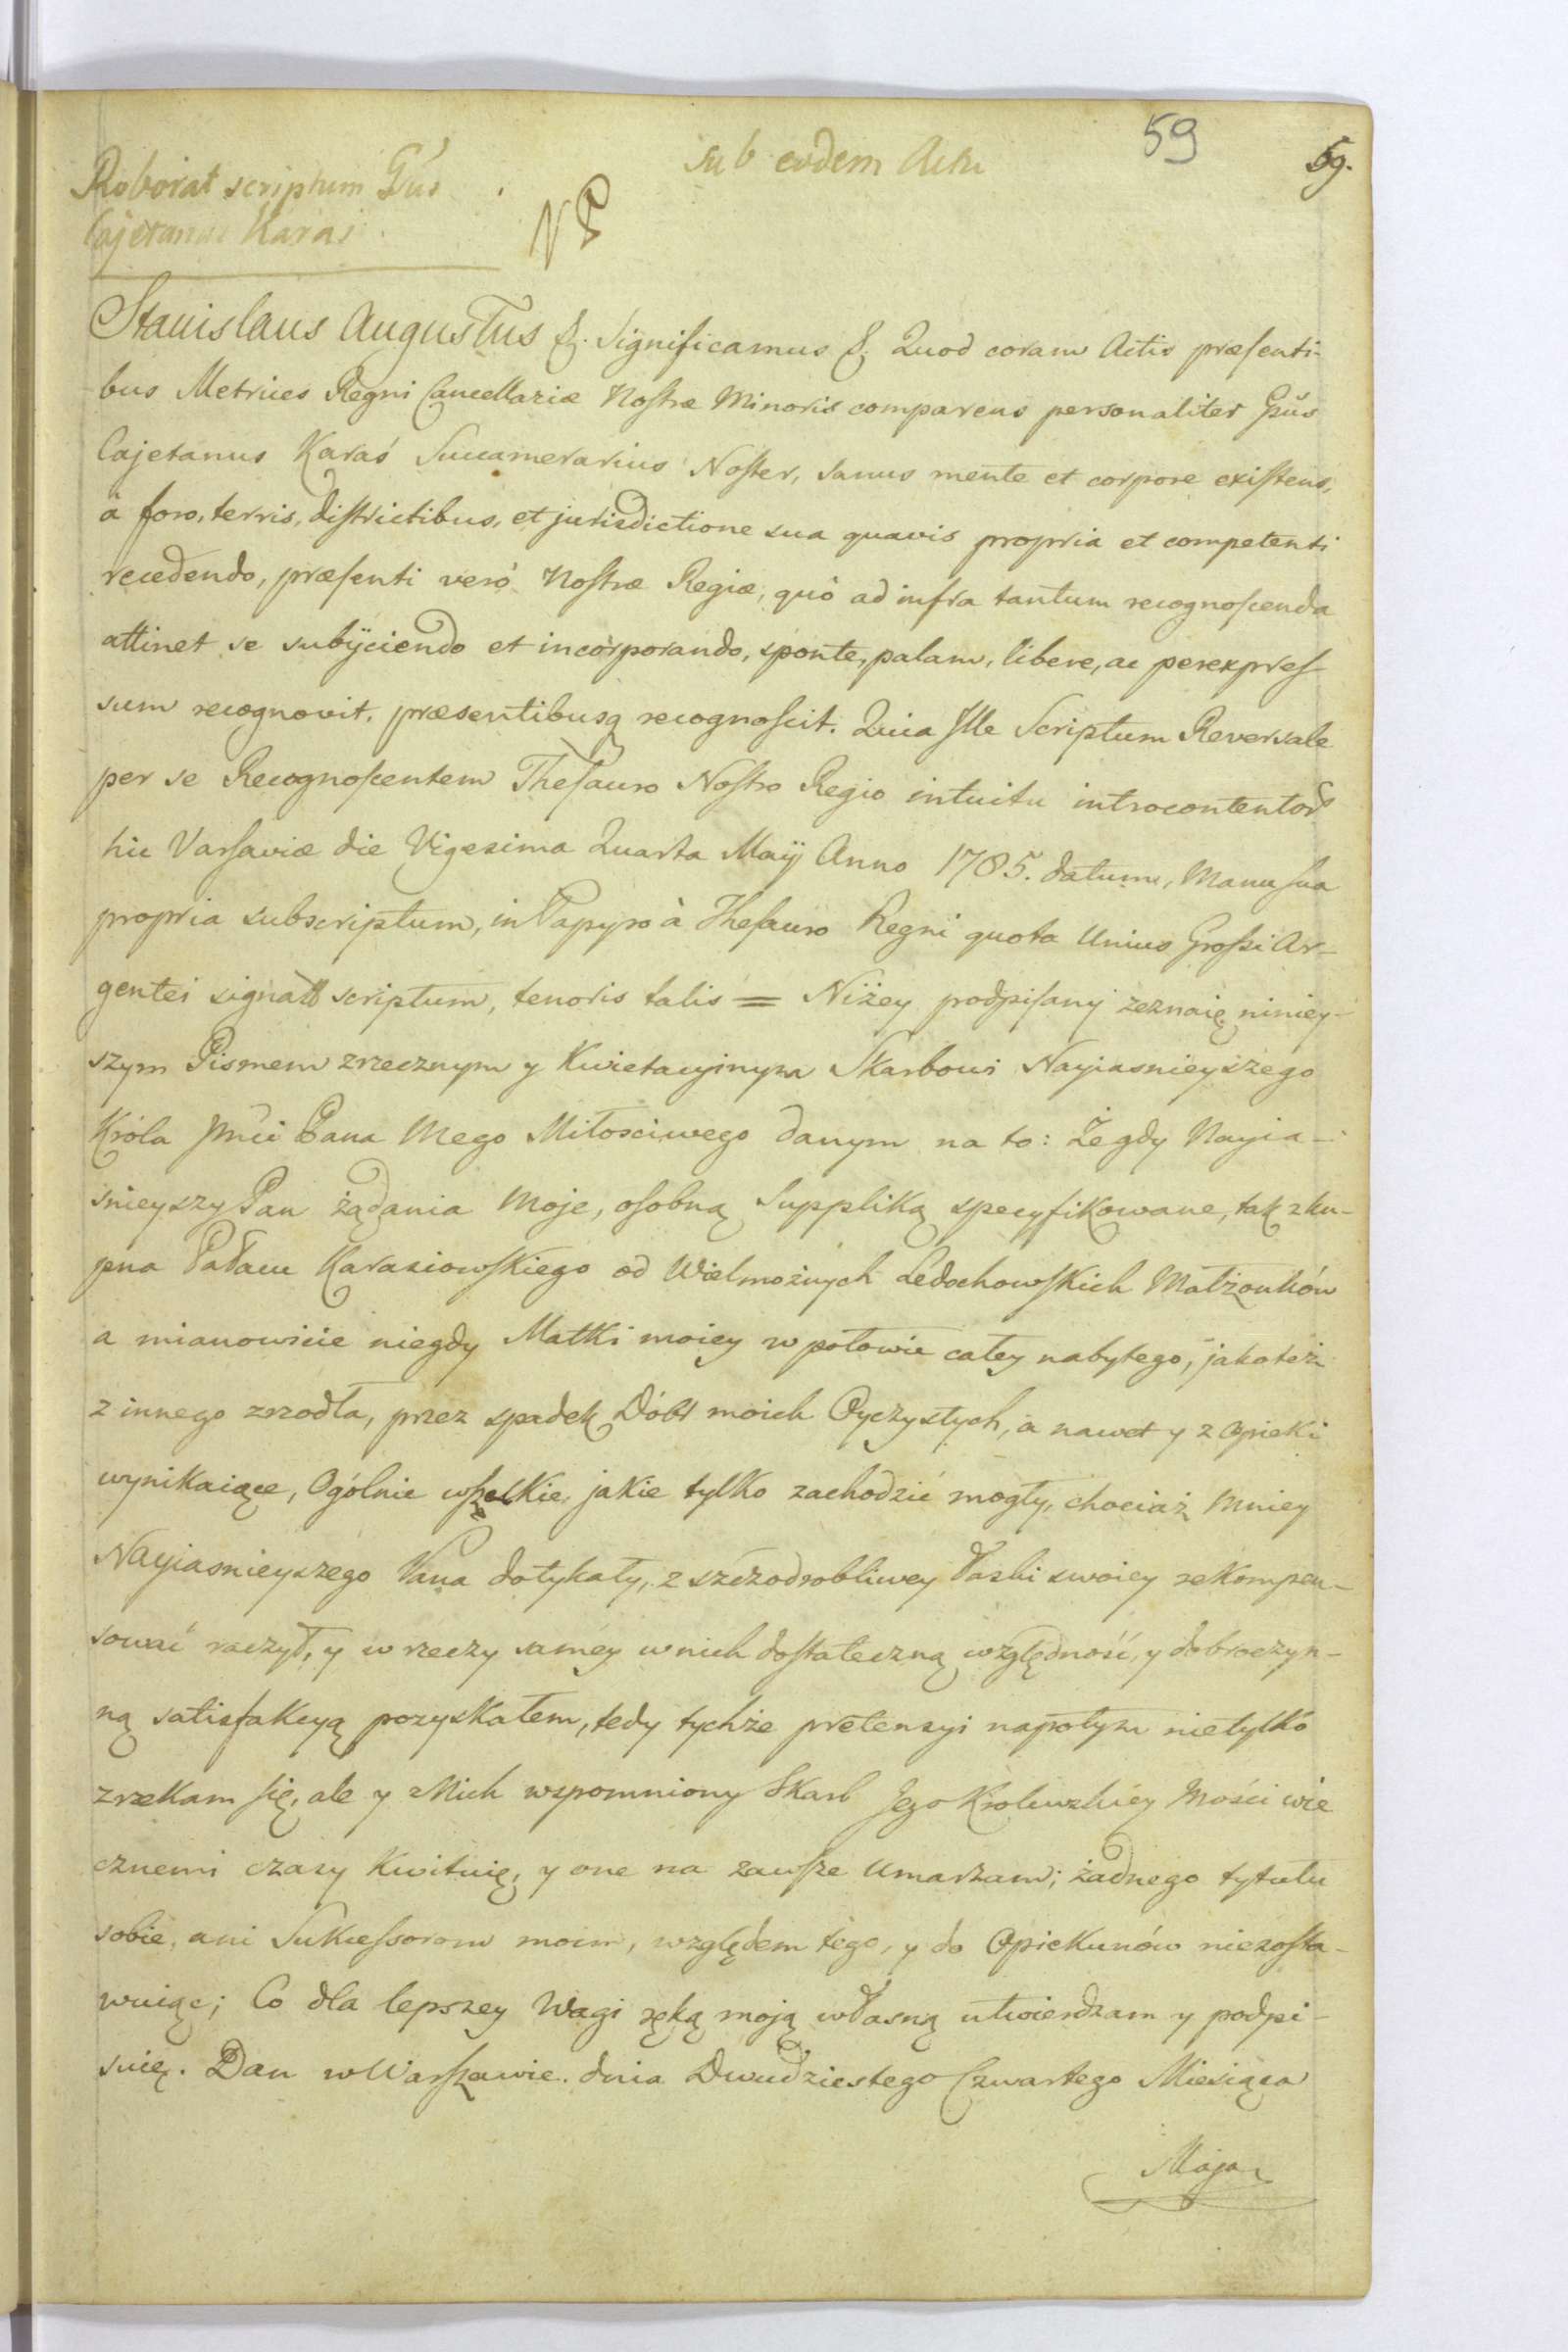 59
59.
sub eodem Actu
Roborat scriptum Gñs
Cajetanus Karaś
Stanislaus Augustus &. Significamus &. Quod coram Actis præsenti-
bus Metrices Regni Cancellariæ Nostræ Minoris comparens personaliter Gñs
Cajetanus Karaś Succamerarius Noster, sanus mente et corpore existens,
à foro, terris, districtibus, et jurisdictione sua quavis propria et competenti
recedendo, præsenti verò Nostræ Regiæ, quò ad infra tantum recognoscenda
attinet se subÿciendo et incorporando, sponte, palam, libere, ac per expres
sum recognovit, præsentibusq recognoscit. Quia Ille Scriptum Reversale
per se Recognoscentem Thesauro Nostro Regio intuitu introcontentor
hic Varsaviæ die Vigesima Quarta Maÿ Anno 1785. datum, Manu sua
propria subscriptum, in Papyro à Thesauro Regni quota Unius Grossi Ar-
gentei signatt scriptum, tenoris talis = Niżey podpisany zeznaię niniey-
szym Pismem zrzecznym y Kwietacyinym Skarbowi Nayiasnieyszego
Króla Jmći Pana Mego Miłosciwego danym na to: Że gdy Nayia-
snieyszy Pan żądania moje, osobną Suppliką specyfikowane, tak z ku-
pna Pałacu Karasiowskiego od Wielmożnych Ledochowskich Małżonków
a mianowicie niegdy Matki moiey w połowie całey nabytego, jakoteż
z innego zrzodła, przez spadek Dóbr moich Oyczystych, a nawet y z opieki
wynikaiące, Ogólnie wszelkie, jakie tylko zachodzić mogły, chociaż mniey
Nayiasnieyszego Pana dotykały, z szczodrobliwey Łaski swoiey rekompen-
sować raczył, y w rzeczy samey w nich dostateczną względność, y dobroczyn-
ną satisfakcyą pozyskałem, tedy tychże pretensyi napotym nietylko
zrzekam się, ale y z Nich wspomniony Skarb Jego Krolewskiey Mości wie
cznemi czasy Kwituię, y one na zawsze Umarzam; żadnego tytułu
sobie, ani Sukcessorom moim, względem tego, y do Opiekunów niezosta-
wuiąc; Co dla lepszey Wagi ręką moją własną utwierdzam y podpi-
suię. Dan w Warszawie. dnia Dwudziestego Czwartego Miesiąca
Maja